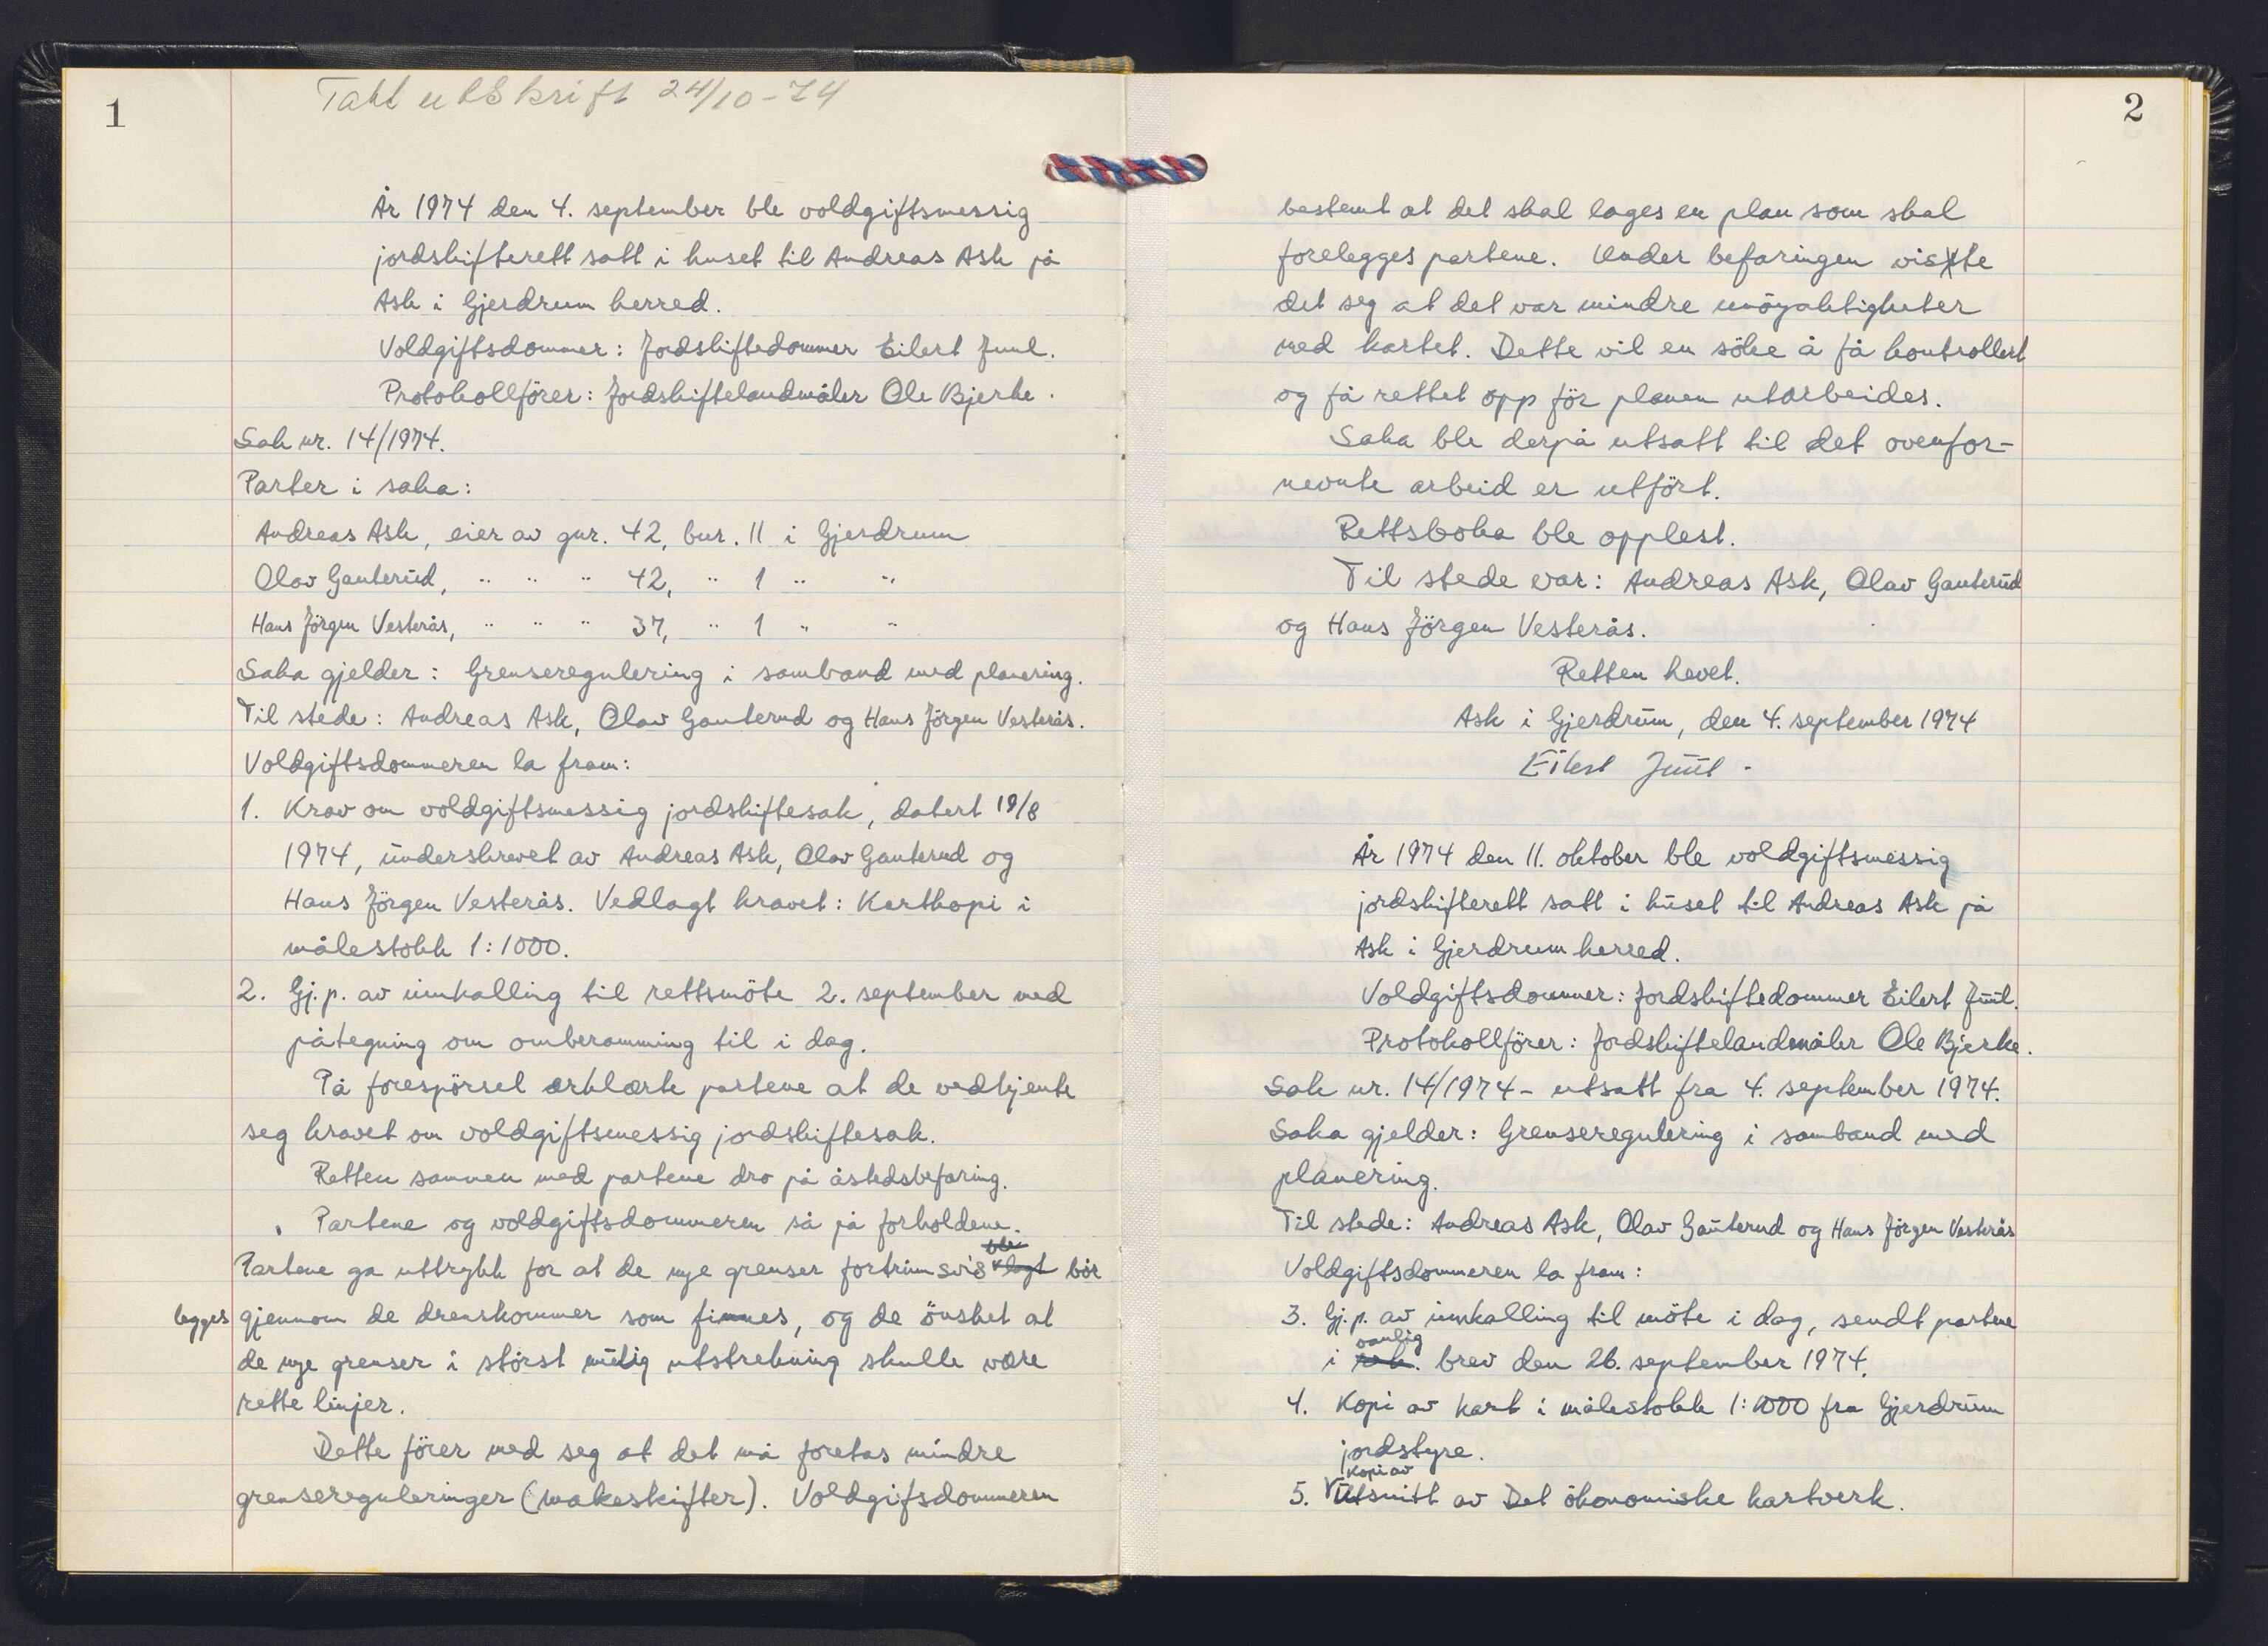 1
Tatt utskrift 24/10-74
År 1974 den 4. september ble voldgiftsmessig
jordskifterett satt i huset til Andreas Ask på
Ask i Gjerdrum herred.
Voldgiftsdommer: Jordskiftedommer Eilert Juul.
Protokollförer: Jordskiftelandmåler Ole Bjerke.
Sak nr. 14/1974.
Parter i saka:
Andreas Ask, eier av gnr. 42, bnr. 11 i Gjerdrum
Olav Gauterud, " " " 42, " 1 " "
Hans Jörgen Vesterås, " " " 37, " 1 " "
Saka gjelder: Grenseregulering i samband med planering.
Til stede: Andreas Ask, Olav Gauterud og Hans Jörgen Vesterås.
Voldgiftsdommeren la fram:
1. Krav om voldgiftsmessig jordskiftesak, datert 19/8
1974, underskrevet av Andreas Ask, Olav Gauterud og
Hans Jörgen Vesterås. Vedlagt kravet: Kartkopi i
målestokk 1:1000.
2. Gj.p. av innkalling til rettsmöte 2. september med
påtegning om omberamming til i dag.
På forespörsel erklærte partene at de vedkjente
seg kravet om voldgiftsmessig jordskiftesak.
Retten sammen med partene dro på åstedsbefaring.
Partene og voldgiftsdommeren så på forholdene.
ble
Partene ga uttrykk for at de nye grenser fortrinsvis lagt bör
legges gjennom de drenskommer som finnes, og de önsket at
de nye grenser i störst mulig utstrekning skulle være
rette linjer.
Dette förer med seg at det må foretas mindre
grensereguleringer (makeskifter). Voldgifsdommeren
2
bestemt at det skal lages en plan som skal
forelegges partene. Under befaringen viste
det seg at det var mindre unöyaktigheter
med kartet. Dette vil en söke å få kontrollert
og få rettet opp för planen utarbeides.
Saka ble derpå utsatt til det ovenfor-
nevnte arbeid er utfört.
Rettsboka ble opplest.
Til stede var: Andreas Ask, Olav Gauterud
og Hans Jörgen Vesterås.
Retten hevet.
Ask i Gjerdrum, den 4. september 1974
Eilert Juul.
År 1974 den 11. oktober ble voldgiftsmessig
jordskifterett satt i huset til Andreas Ask på
Ask i Gjerdrum herred.
Voldgiftsdommer: Jordskiftedommer Eilert Juul.
Protokollförer: Jordskiftelandmåler Ole Bjerke.
Sak nr. 14/1974 - utsatt fra 4. september 1974.
Saka gjelder: Grenseregulering i samband med
planering.
Til stede: Andreas Ask, Olav Gauterud og Hans Jörgen Vesterås
Voldgiftsdommeren la fram:
3. Gj.p. av innkalling til möte i dag, sendt partene
vanlig
i rek. brev den 26. september 1974.
4. Kopi av kart i målestokk 1:1000 fra Gjerdrum
jordstyre.
Kopi av
5. Utsnitt av Det ökonomiske kartverk.